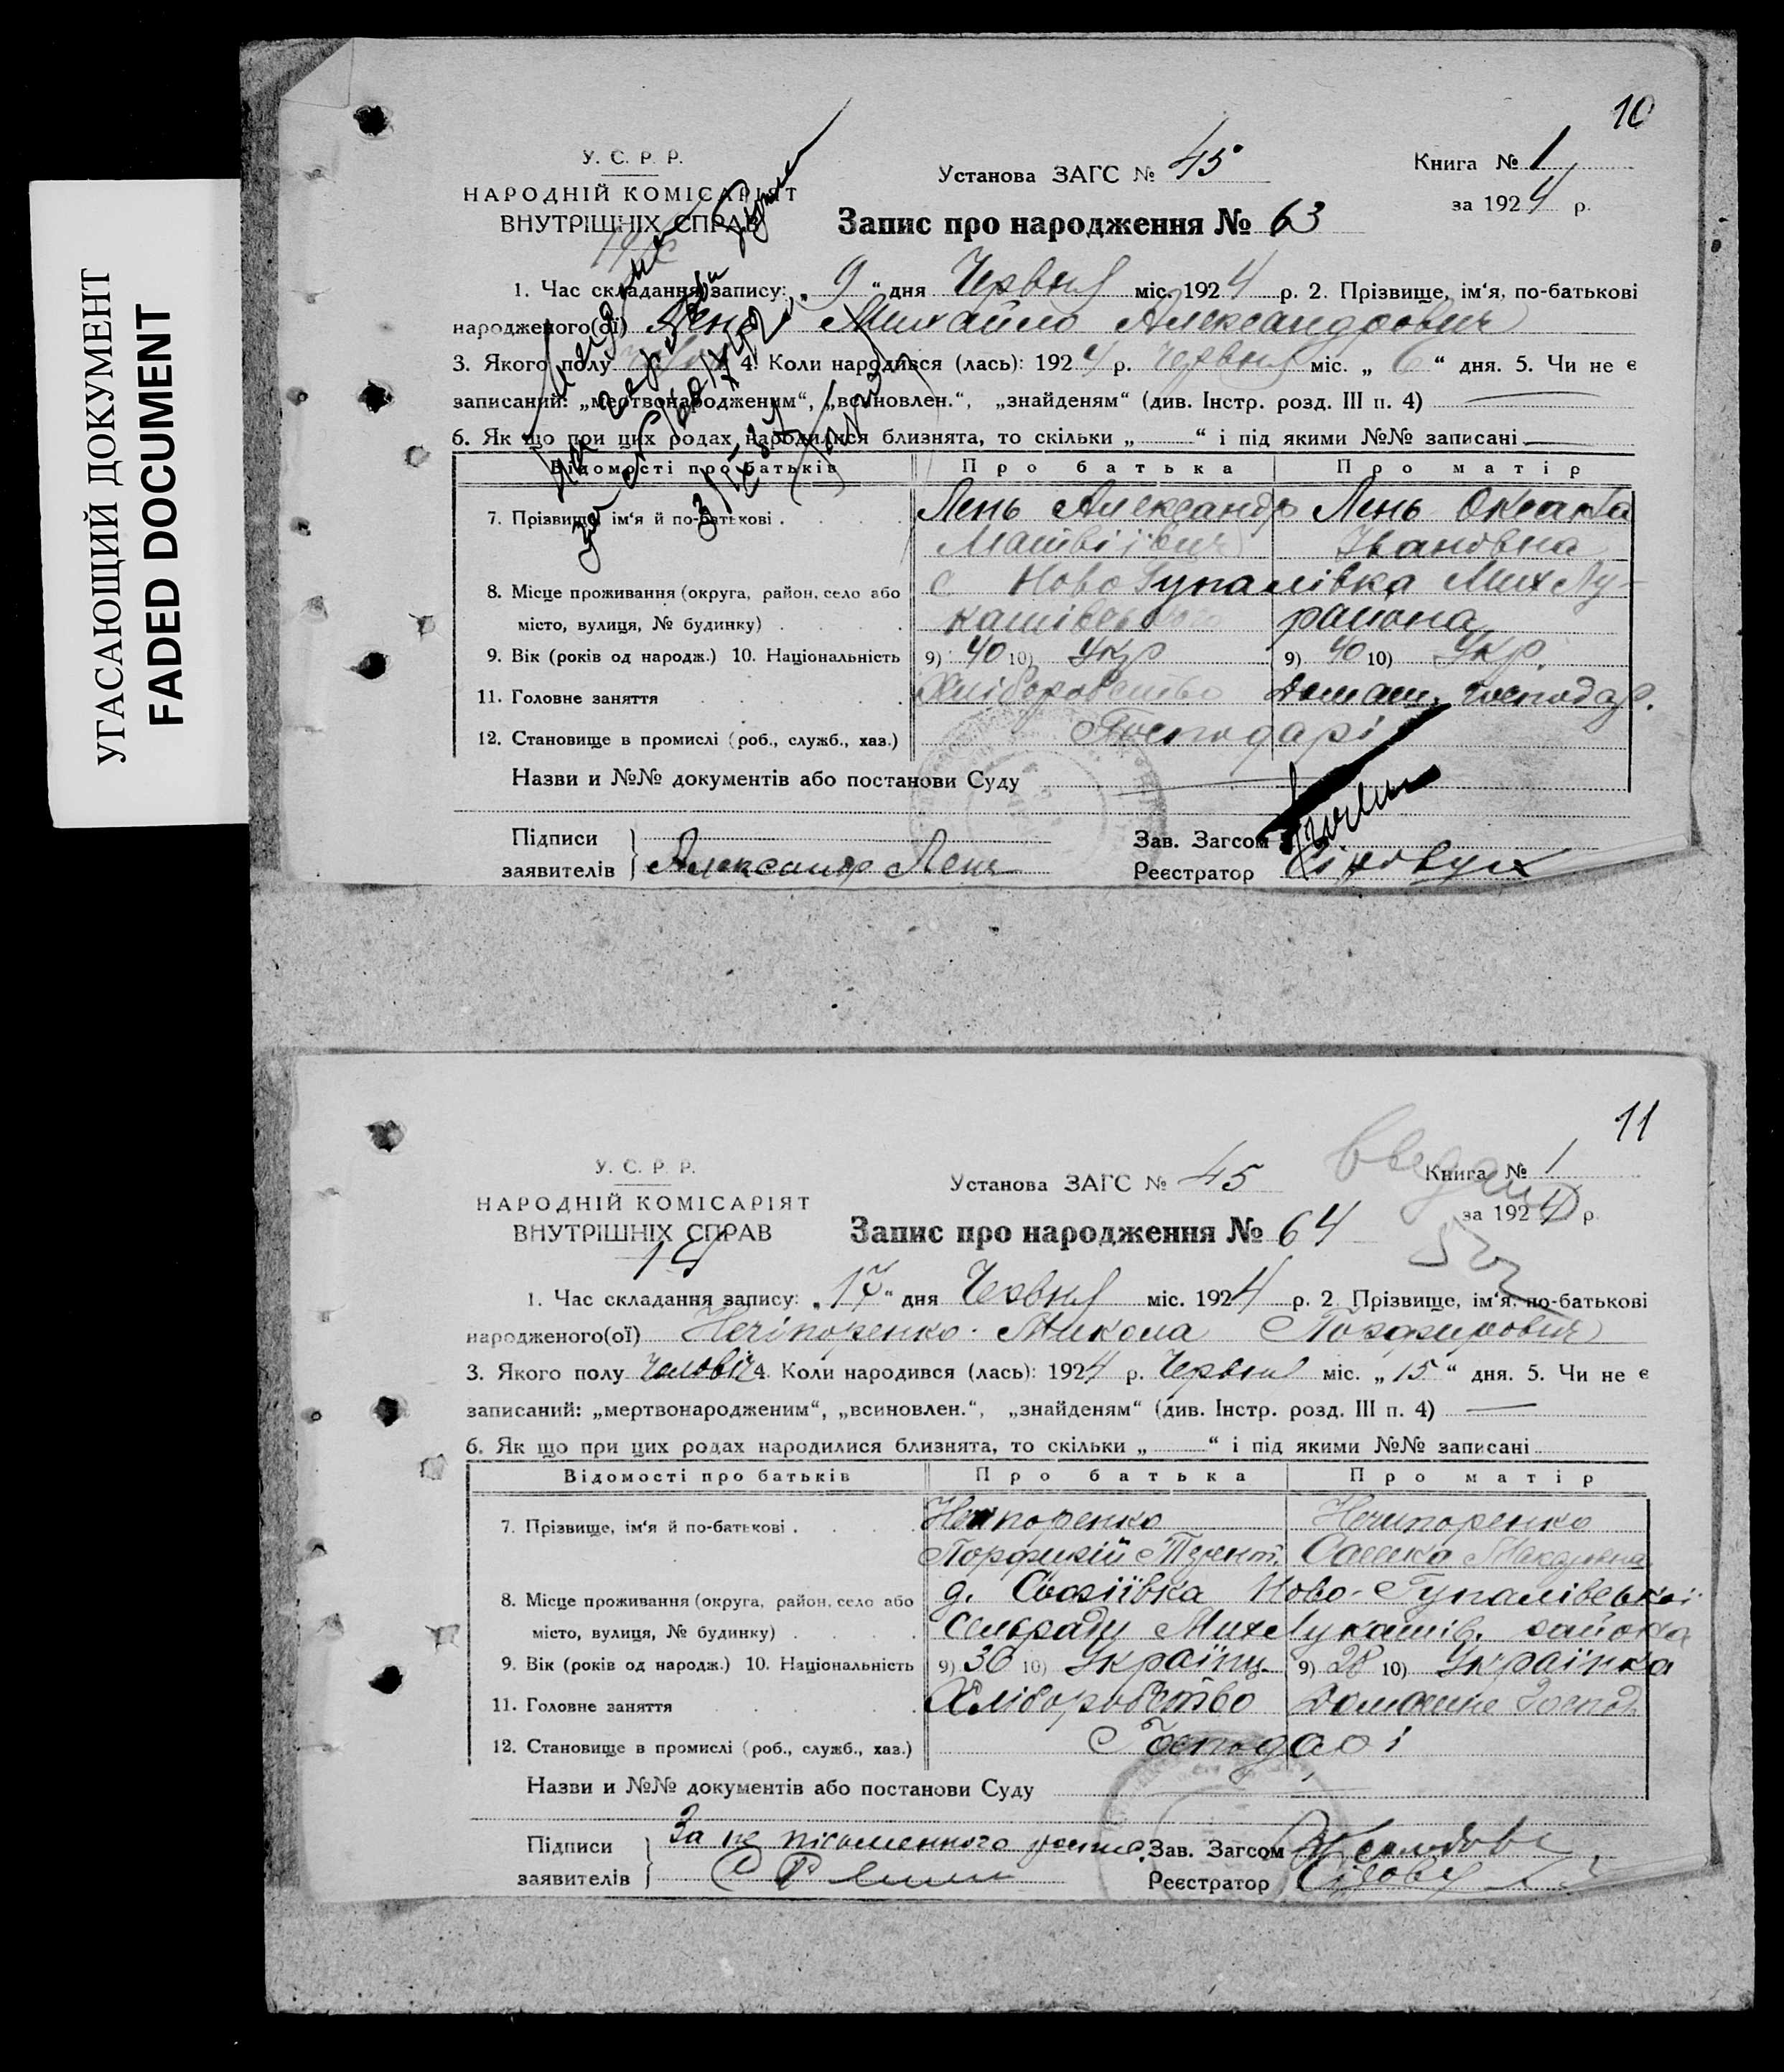 УГАСАЮЩИЙ ДОКУМЕНТ
FADED DOCUMENT
10
У. С. Р. Р.
НАРОДНІЙ КОМІСАРІЯТ
ВНУТРІШНІХ СПРАВ
Установа ЗАГС № 45
Книга № 1
за 1924 р.
Запис про народження № 63
1. Час складання запису: „ 9 “ дня Червня міс. 1924 р. 2. Прізвище, ім‘я, по-батькові
народженого(ої) Лень Михайло Александрович
3. Якого полу 4. Коли народився (лась): 1924 р. Червня міс. „ 6 “ дня. 5. Чи не є
записаний: „мертвонародженим“, „всиновлен.“, „знайденям“ (див. Інстр. розд. III п. 4)
6. Як що при цих родах народилися близнята, то скільки „ “ і під якими №№ записані
Відомості про батьків Про батька Про матір
7. Прізвище, ім‘я й по-батькові . Лень Александр Лень Оксана
Матвіївич Івановна
8. Місце проживання (округа, район, село або с Ново Гупалівка Мих Лу-
місто, вулиця, № будинку) . кашівського района
9. Вік (років од народж.) 10. Національність 9) 40 10) Укр 9) 40 10) Укр.
11. Головне заняття Хліборобство Домаш. господар.
12. Становище в промислі (роб., служб., хаз.) Господарі
Назви и №№ документів або постанови Суду
Підписи
заявителів Александр Лень
Зав. Загсом
Реєстратор
11
У. С. Р. Р.
НАРОДНІЙ КОМІСАРІЯТ
ВНУТРІШНІХ СПРАВ
Установа ЗАГС № 45
Книга № 1
за 1924 р.
Запис про народження № 64
1. Час складання запису: „ 17 “ дня Червня міс. 1924 р. 2. Прізвище, ім‘я, по-батькові
народженого(ої) Нечіпоренко Микола Порфирович
3. Якого полу чоловіч 4. Коли народився (лась): 1924 р. Червня міс. „ 15 “ дня. 5. Чи не є
записаний: „мертвонародженим“, „всиновлен.“, „знайденям“ (див. Інстр. розд. III п. 4)
6. Як що при цих родах народилися близнята, то скільки „ “ і під якими №№ записані
Відомості про батьків Про батька Про матір
7. Прізвище, ім‘я й по-батькові . Нечипоренко Нечипоренко
Порфирій
8. Місце проживання (округа, район, село або д. Софіївка Ново-Гупалівської
місто, вулиця, № будинку) . Сельради Мих Лукашів. района
9. Вік (років од народж.) 10. Національність 9) 36 10) Українц 9) 28 10) Українка
11. Головне заняття Хліборобство Домашнє Господ.
12. Становище в промислі (роб., служб., хаз.) Господарі
Назви и №№ документів або постанови Суду
Підписи
заявителів За не письменного
Зав. Загсом
Реєстратор